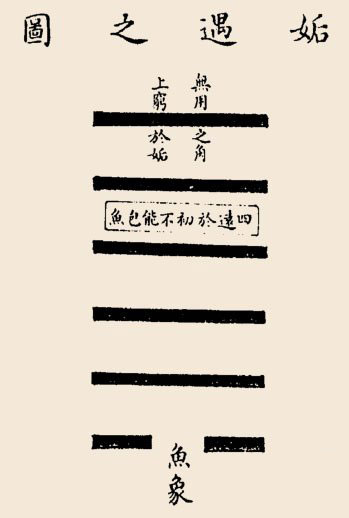 姤遇之圖
無用之角
上窮於姤
四遠於初不能包魚
魚象